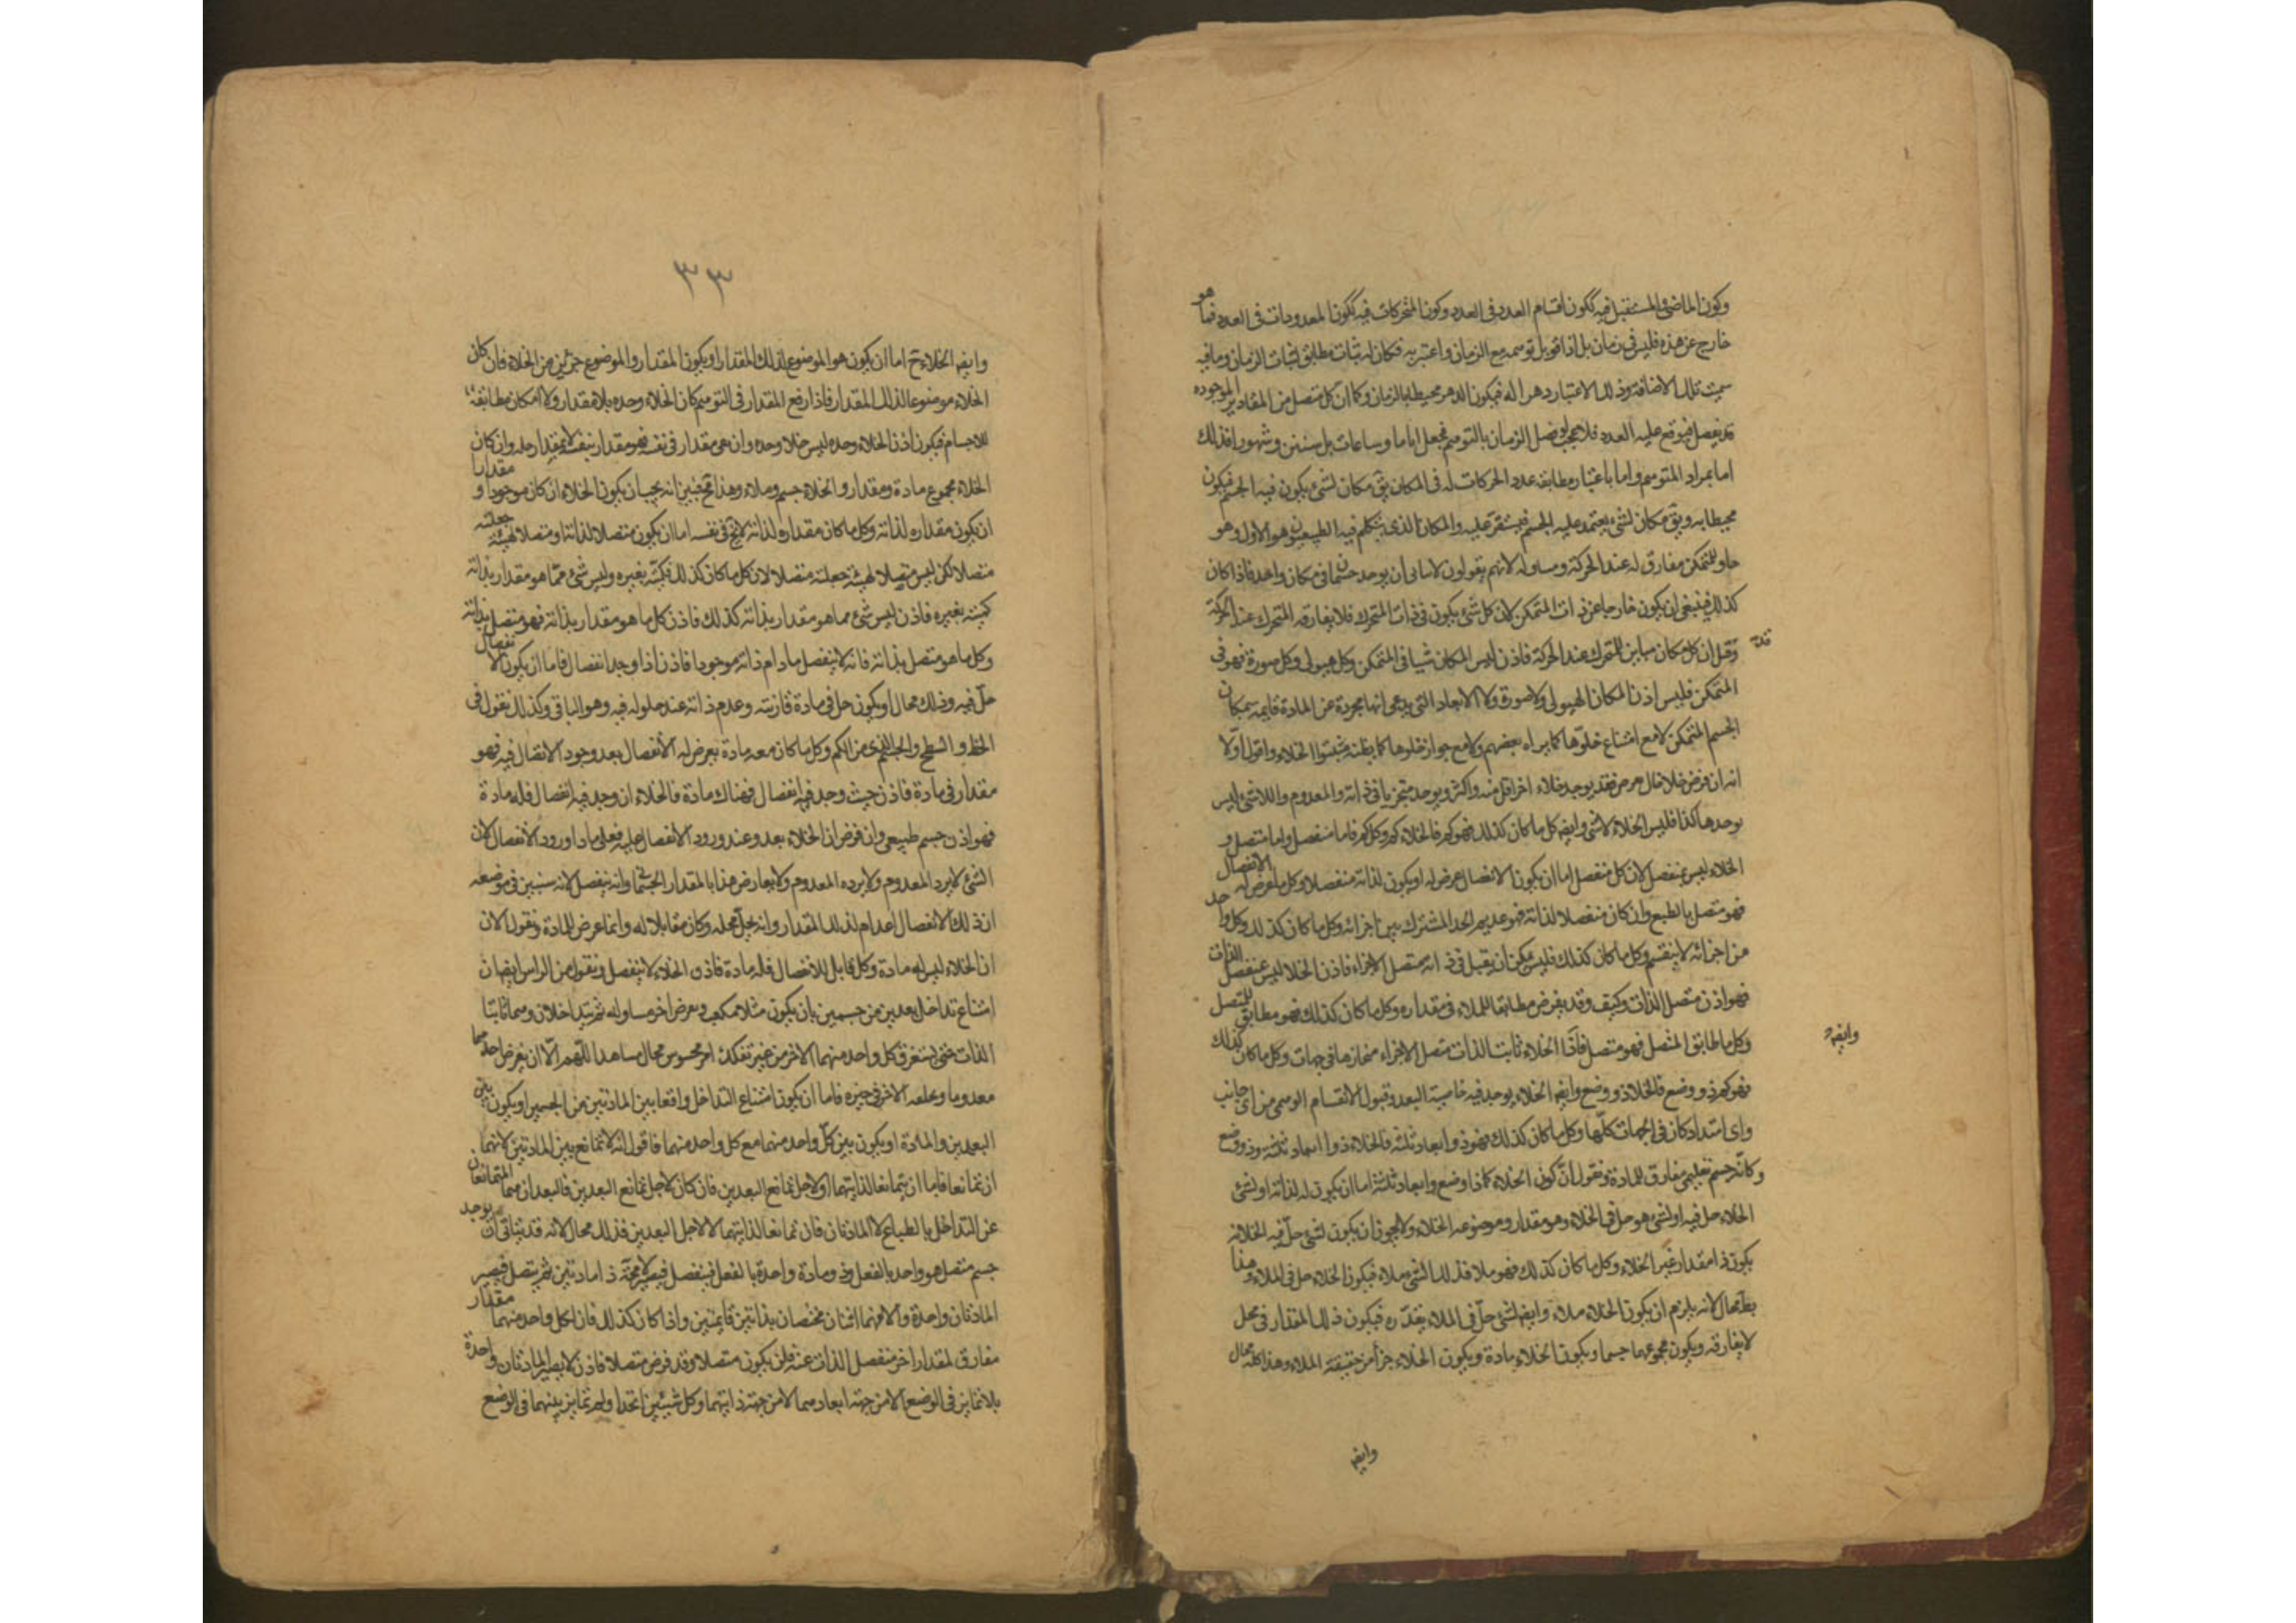 وكون الماضى والمستقبل فيه ككون اقسام العدد فى العدد وكون المتحركات فيه ككون المعدودات فى العدد فما هو
خارج عن هذه فليس فى زمان بل اذا قوبل توسمه مع الزمان واعتبر به فكان له ثبات مطابق لثبات الزمان وما فيه
سميت تلك الاضافة وذلك الاعتبار دهرا له فيكون الدهر محيطا بالزمان وكما ان كل متصل من المقادير الموجوده
قد يفصل فيوقع عليه العدد فلا عجب لو فصل الزمان بالتوهم فجعل اياما وساعات بل سنين وشهورا فذلك
اما بمراد المتوهم واما باعتبار مطابقة عدد الحركات له فى المكان يق مكان لشئ يكون فيه الجسم فيكون
محيطا به ويق مكان لشئ يعتمد عليه الجسم فيستقر عليه والمكان الذى يتكلم فيه الطبيعيون هو الاول وهو
حاو للمتمكن مفارق له عند الحركة ومساو له لانهم يقولون لا يتاتى ان يوجد جسمان فى مكان واحد فاذا كان
كذلك فينبغى ان يكون خارجا عن ذات المتمكن لان كل شئ يكون فى ذات المتحرك فلا يفارقه المتحرك عند الحركة
وقيل ان كل مكان مباين للمتحرك عند الحركة فاذن ليس المكان شيا فى المتمكن وكل هيولى وكل صورة فهو فى
المتمكن فليس اذن المكان الهيولى ولا صورة ولا الابعاد التى يدعى انها مجردة عن المادة قايمة بمكان
الجسم المتمكن لا مع امتناع خلوها كما يراه بعضهم ولا مع جواز خلوها كما يظنه مثبتوا الخلاء واقول اولا
انه ان فرض خلا خال فقد يوجد خلاء اخر اقل منه واكثر ويوجد متجزيا فى ذاته والمعدوم واللاشئ ليس
يوجد هكذا فليس الخلاء لاشئ وايضه كل ما كان كذلك فهو كم فالخلاء كم وكل كم فاما منفصل واما متصل و
الخلاء ليس بمنفصل لان كل منفصل اما ان يكون الانفصال عرض له او يكون لذاته منفصلا وكل ما عرض له الانفصال
فهو متصل بالطبع وان كان منفصلا لذاته فهو عديم الحد المشترك بين اجزائه وكل ما كان كذلك وكل واحد
من اجزائه لا ينقسم وكل ما كان كذلك فليس يمكن ان يقبل فى ذاته متصل الاجزاء فاذن الخلا ليس بمنفصل الذات
فهو اذن متصل الذات وكيف وقد يفرض مطابقا للملاء فى مقداره وكل ما كان كذلك فهو مطابق للمتصل
وكل ما طابق المتصل فهو متصل فاذا الخلاء ثابت الذات متصل الاجزاء منحازها فى جهات وكل ما كان كذلك
فهو كم ذو وضع فالخلا ذو وضع وايضه الخلاء يوجد فيه خاصية البعد وقبول الانقسام الوهمى من اى جانب
واى امتداد كان فى الجهات كلها وكل ما كان كذلك فهو ذو ابعاد ثلثه فالخلاء ذو ابعاد ثلثه وذو وضع
وكانه جسم تعليمى مفارق للمادة ونقول ان كون الخلاء كم ذا وضع وابعاد ثلثة اما ان يكون له لذاته او لشئ
الخلاء حل فيه او لشئ هو حل فى الخلاء وهو مقدار وموضوعه الخلاء ولا يجوز ان يكون لشئ حل فيه الخلا لانه
يكون ذا مقدار غير الخلاء وكل ما كان كذلك فهو ملا فذلك الشئ ملاء فيكون الخلاء حل فى الملاء وهذا
بط محال لانه يلزم ان يكون الخلاء ملاء وايضه لشئ حل فى الملاء يقدره فيكون ذلك المقدار فى محل
لا يفارقه ويكون مجموعهما جسما ويكون الخلاء مادة ويكون الخلاء جزأ من حقيقة الملاء وهذا كله محال
وايضه
وايضه
٣٣
وايضه الخلاء ح اما ان يكون هو الموضوع لذلك المقدار او يكون المقدار والموضوع جزئين من الخلاء فان كان
الخلاء موضوعا لذلك المقدار فاذا رفع المقدار فى التوهم كان الخلاء وحده بلا مقدار ولا امكان مطابقة
للاجسام فيكون اذن الخلاء وحده ليس خلا وحده وان بقى مقدار فى نفسه فهو مقدار بنفسه لا بمقدار حله وان كان
الخلاء مجموع مادة ومقدار والخلاء جسم وملاء وهذا قح فتبين انه يجب ان يكون الخلاء ان كان موجودا و مقدارا
ان يكون مقداره لذاته وكل ما كان مقداره لذاته لا يخ فى نفسه اما ان يكون متصلا لذاته او متصلا لهيئة جعلته
متصلا لكن ليس متصلا لهيئة جعلته متصلا لان كل ما كان كذلك فكميته بغيره وليس شئ مما هو مقدار بذاته
كميته بغيره فاذن ليس شئ مما هو مقدار بذاته كذلك فاذن كل ما هو مقدار بذاته فهو متصل بذاته
وكل ما هو متصل بذاته فانه لا ينفصل مادام ذاته موجودا فاذن اذا وجد انفصال فاما ان يكون الانفصال
حل فيه وذلك محال او يكون حل فى مادة قارنته وعدم ذاته عند حلوله فيه وهو الباقى وكذلك نقول فى
الخط والسطح والجسم الذى من الكم وكل ما كان معه مادة يعرض له الانفصال بعد وجود الاتصال فيه فهو
مقدار فى مادة فاذن حيث وجد فيه انفصال فهناك مادة فالخلاء ان وجد فيه انفصال فله مادة
فهو اذن جسم طبيعى وان فرض ان الخلاء بعد وعند ورود الانفصال عليه فعلى ماذا ورود الانفصال لان
الشئ لا يرد المعدوم ولا يرده المعدوم ولا يعارض هذا بالمقدار الجسمانى وانه ينفصل لانه سنبين فى موضعه
ان ذلك الانفصال اعدام لذلك المقدار وانه يحل محله وكان مقابلا له وانما عرض للمادة ونقول الان
ان الخلاء ليس له مادة وكل قابل للانفصال فله مادة فاذن الخلاء لا ينفصل ونقول من الراس ايضه ان
امتناع تداخل بعدين من جسمين بان يكون مثلا مكعب ويعرض اخر مساو له ثم يتداخلان وهما ثابتا
الذات حتى يستغرق كل واحد منهما الاخر من غير تفكك امر محسوس محال مشاهد اللهم الا ان يفرض احدهما
معدوما وخلفه الاخر فى حيزه فاما ان يكون امتناع التداخل واقعا بين المادتين من الجسمين او يكون بين
البعدين والمادة او يكون بين كل واحد منهما مع كل واحد منهما فاقول انه لا تمانع بين المادتين لانهما
ان تمانعا فاما ان يتمانعا لذاتيهما او لاجل تمانع البعدين فان كان لاجل تمانع البعدين فالبعدان هما المتمانعان
عن التداخل بالطباع لا المادتان فان تمانعا لذاتيهما لا لاجل البعدين فذلك محال لانه قد يتاتى ان يوجد
جسم متصل هو واحد بالفعل وذو مادة واحدة بالفعل فينفصل فيصير لا محة ذا مادتين ثم يتصل فيصير
المادتان واحدة والا فهما اثنتان مختصتان بذاتين قايمتين واذا كان كذلك فان لكل واحد منهما مقدار
مفارق لمقدار اخر منفصل الذات عنه فلن يكون متصلا وقد فرض متصلا فاذن لا يصير المادتان واحدة
بلا تمايز فى الوضع الا من جهة ابعادهما لا من جهة ذاتيهما وكل شيئين اتحدا ولم تمايز بينهما فى الوضع